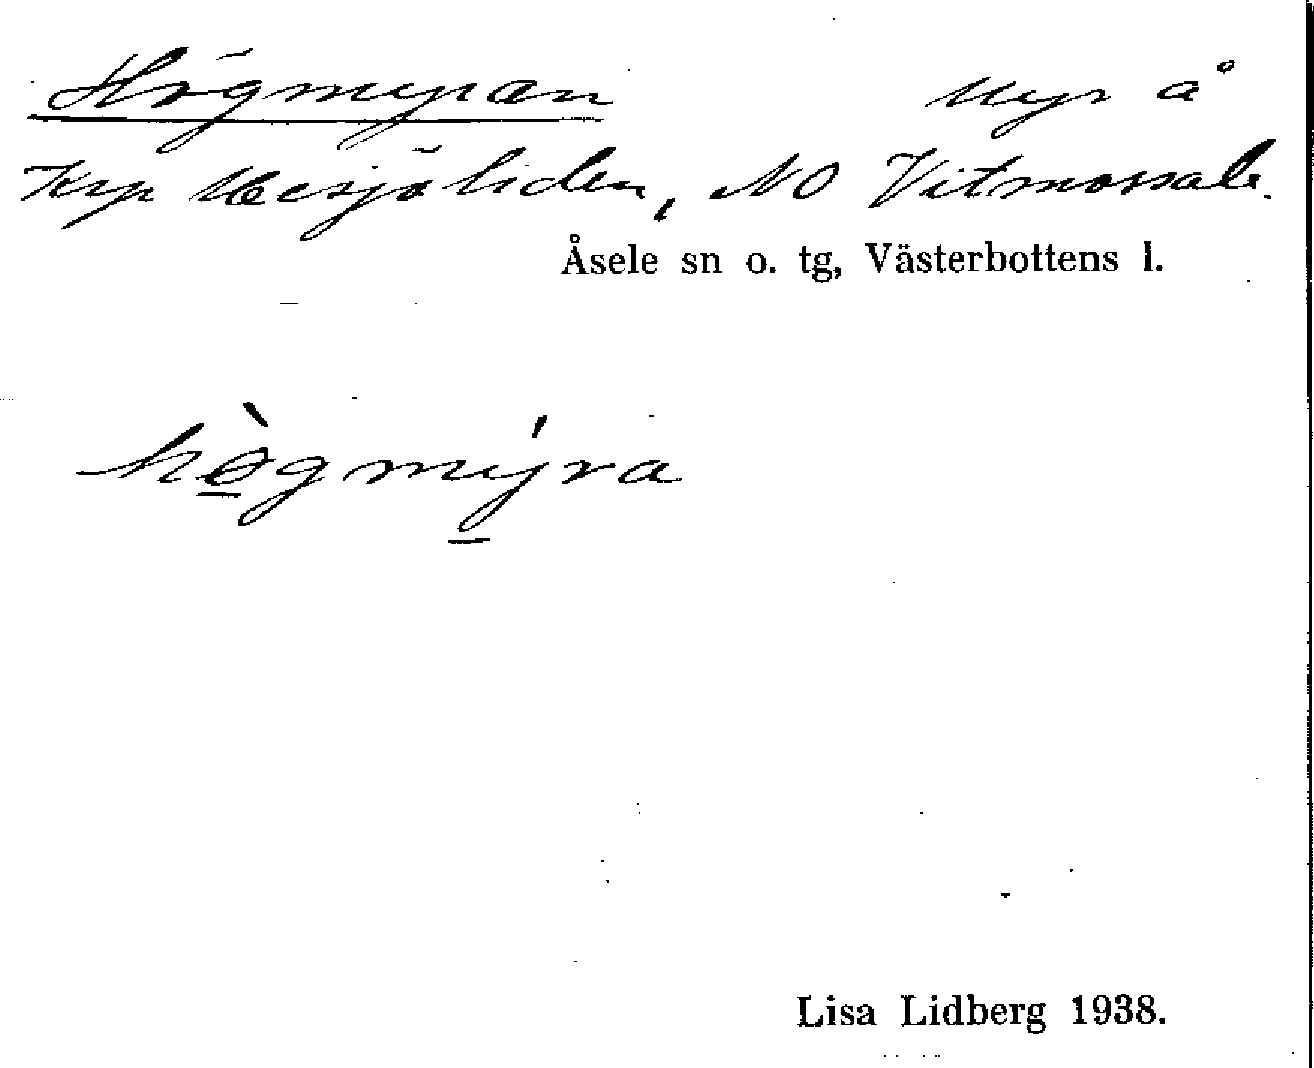 Högmyran Myr å
Krp Mesjöliden, NO Vitmossab.
Åsele sn o. tg, Västerbottens l.
hø̀gmýra
Lisa Lidberg 1938.